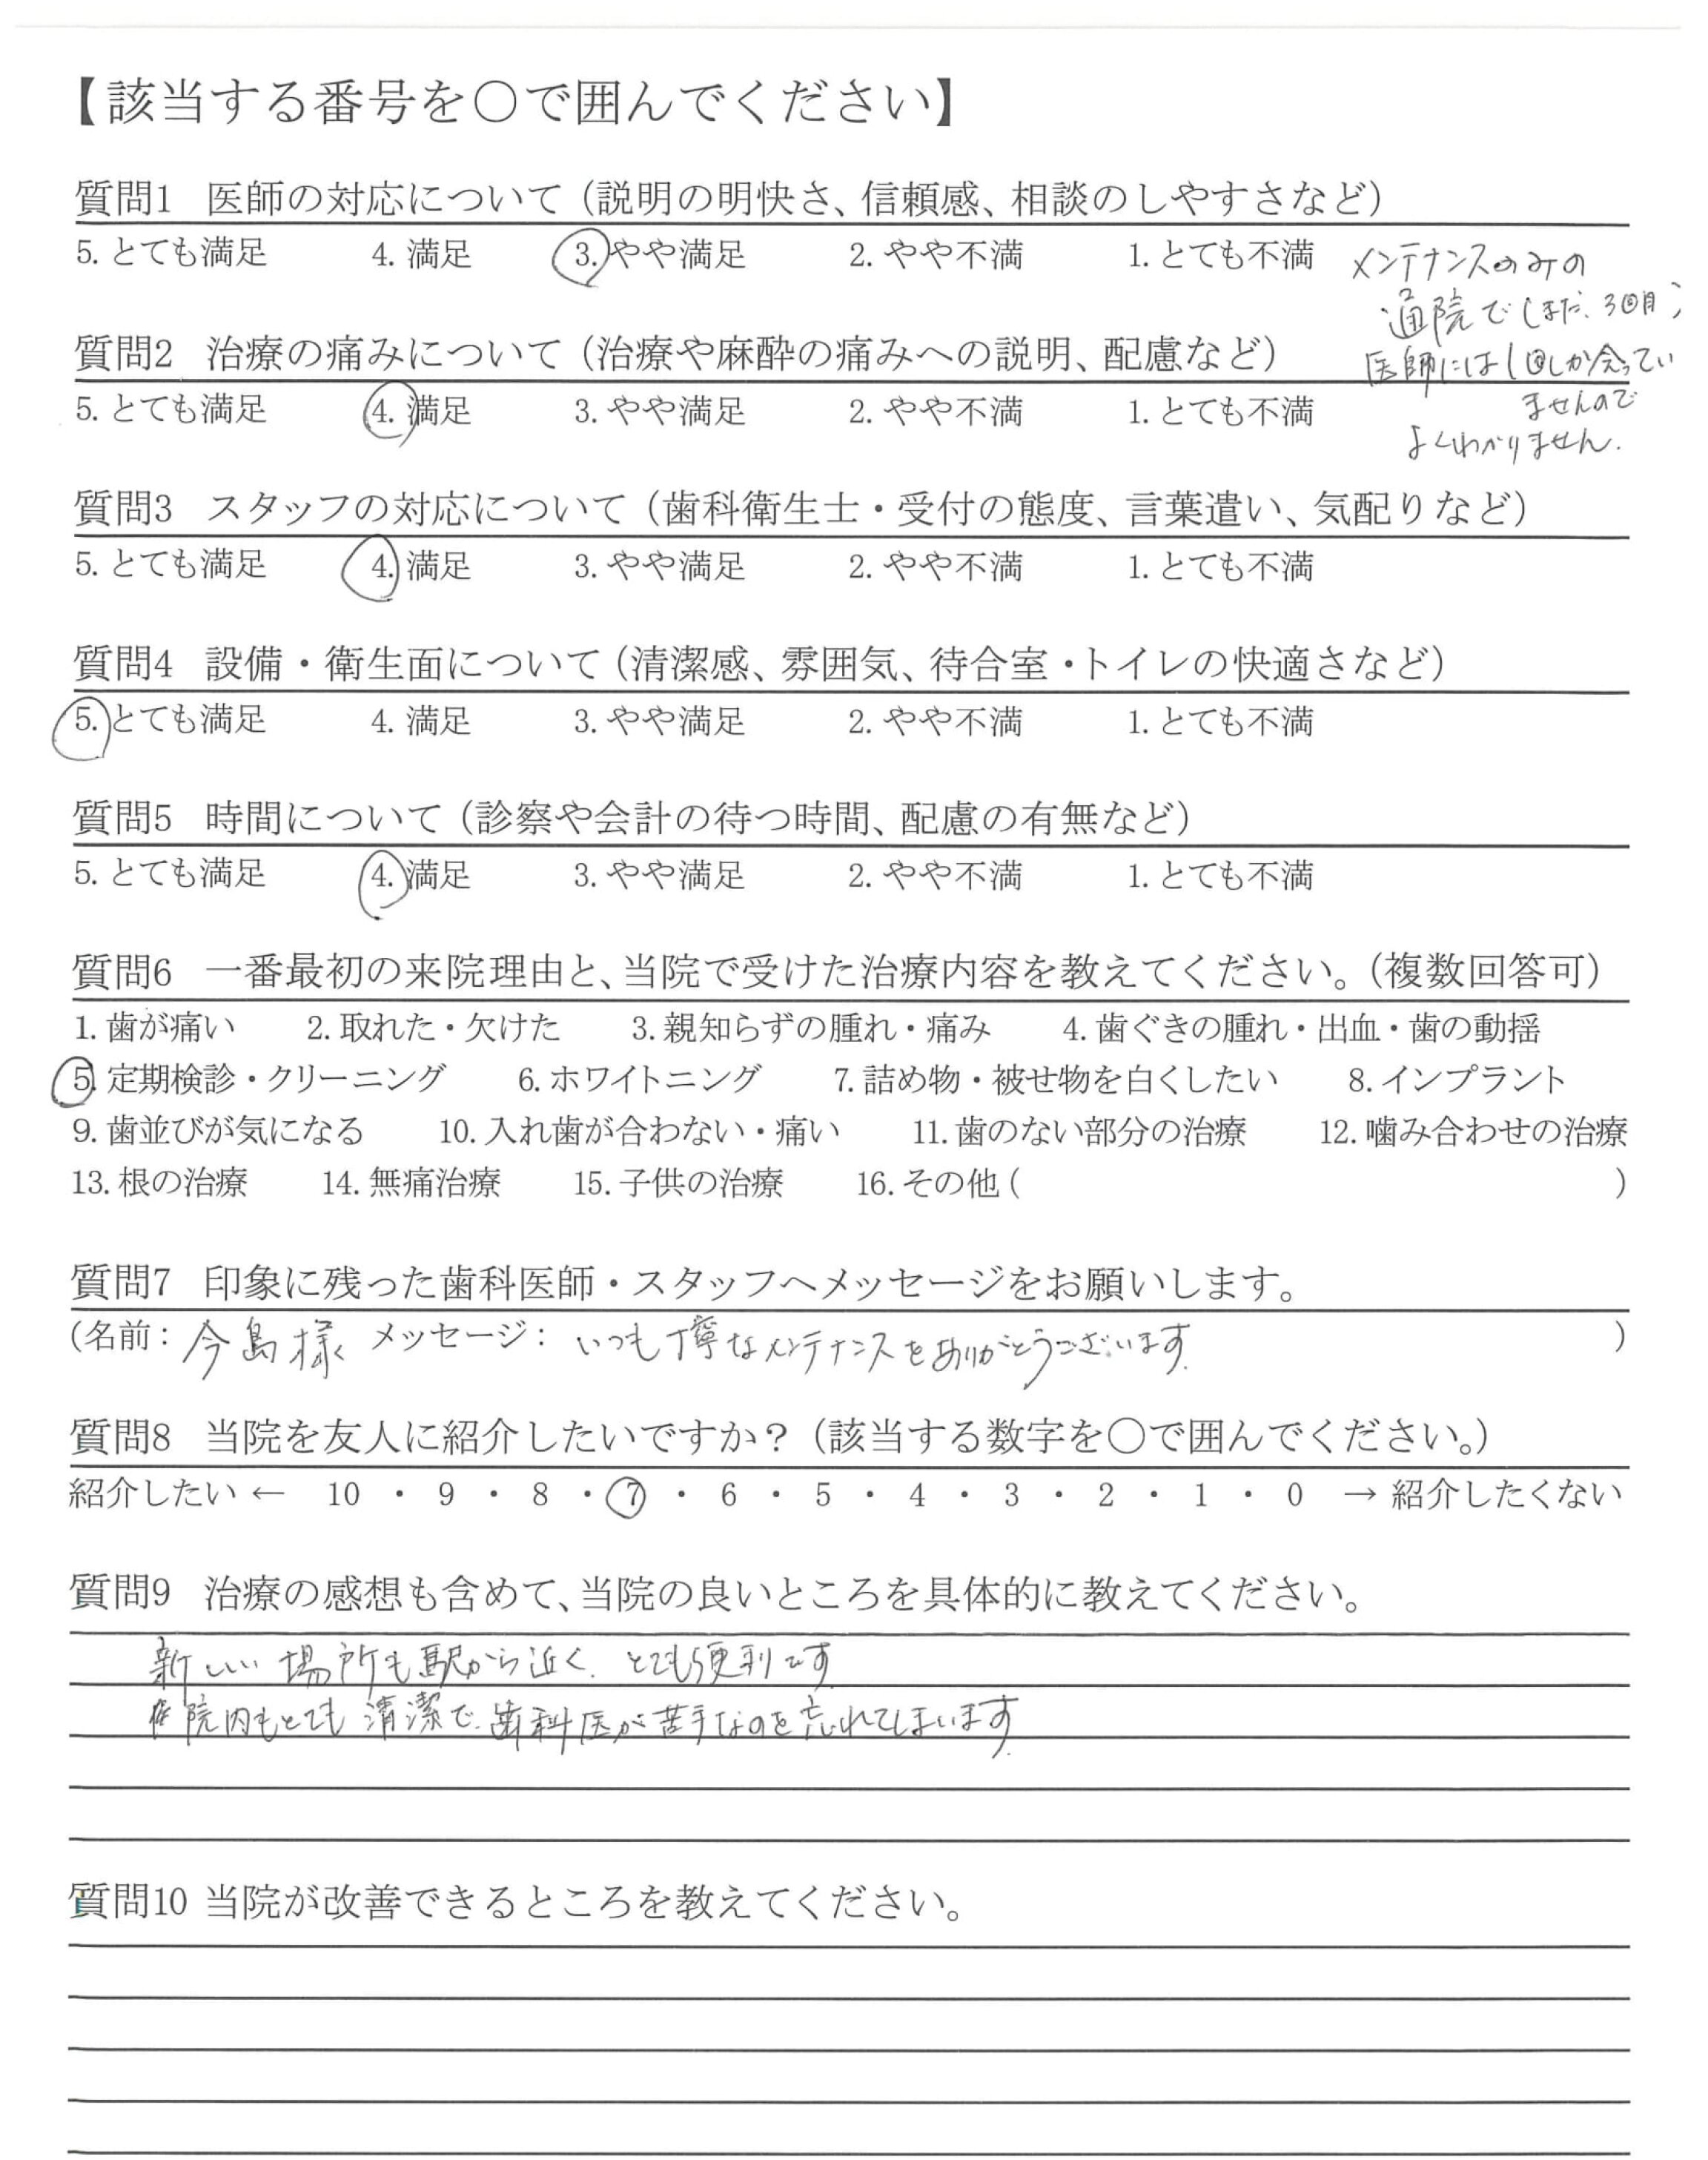 【該当する番号を〇で囲んでください】
質問1 医師の対応について（説明の明快さ、信頼感、相談のしやすさなど）
5. とても満足 4. 満足 3. やや満足 2. やや不満 1. とても不満
メンテナンスのみの
通院で(まだ、3回目)
医師には1回しか会ってい
ませんので
よくわかりません.
質問2 治療の痛みについて（治療や麻酔の痛みへの説明、配慮など）
5. とても満足 4. 満足 3. やや満足 2. やや不満 1. とても不満
質問3 スタッフの対応について（歯科衛生士・受付の態度、言葉遣い、気配りなど）
5. とても満足 4. 満足 3. やや満足 2. やや不満 1. とても不満
質問4 設備・衛生面について（清潔感、雰囲気、待合室・トイレの快適さなど）
5. とても満足 4. 満足 3. やや満足 2. やや不満 1. とても不満
質問5 時間について（診察や会計の待つ時間、配慮の有無など）
5. とても満足 4. 満足 3. やや満足 2. やや不満 1. とても不満
質問6 一番最初の来院理由と、当院で受けた治療内容を教えてください。（複数回答可）
1. 歯が痛い 2. 取れた・欠けた 3. 親知らずの腫れ・痛み 4. 歯ぐきの腫れ・出血・歯の動揺
5. 定期検診・クリーニング 6. ホワイトニング 7. 詰め物・被せ物を白くしたい 8. インプラント
9. 歯並びが気になる 10. 入れ歯が合わない・痛い 11. 歯のない部分の治療 12. 噛み合わせの治療
13. 根の治療 14. 無痛治療 15. 子供の治療 16. その他 ( )
質問7 印象に残った歯科医師・スタッフへメッセージをお願いします。
(名前： 今島様 メッセージ： いつも丁寧なメンテナンスをありがとうございます. )
質問8 当院を友人に紹介したいですか？（該当する数字を〇で囲んでください。）
紹介したい ← 10 ・ 9 ・ 8 ・ 7 ・ 6 ・ 5 ・ 4 ・ 3 ・ 2 ・ 1 ・ 0 → 紹介したくない
質問9 治療の感想も含めて、当院の良いところを具体的に教えてください。
新しい場所も駅から近く、とても便利です
院内もとても清潔で、歯科医が苦手なのを忘れてしまいます.
質問10 当院が改善できるところを教えてください。